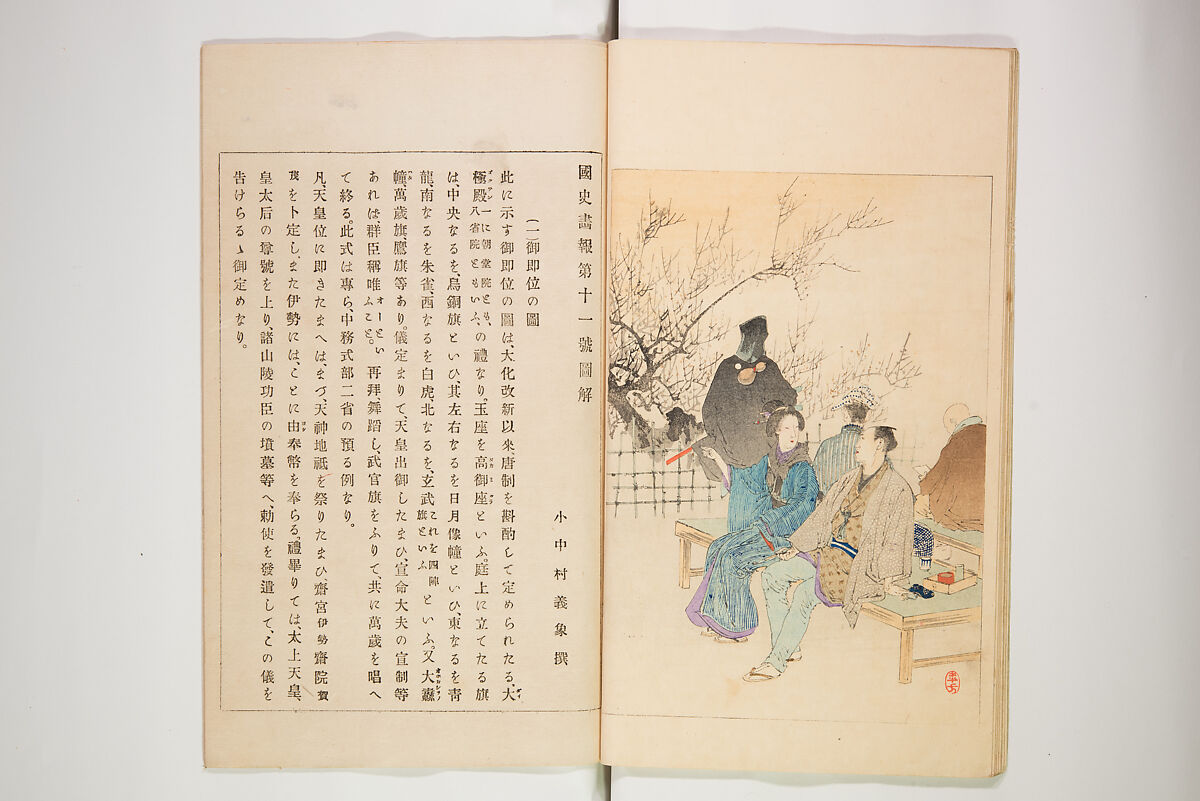 國史畫報第十一號圖解
小中村義象撰
(一)御即位の圖
此に示す御即位の圖は、大化改新以來唐制を斟酌して定められたる、大
極殿一に朝堂院とも、八省院ともいふ、の禮なり。玉座を高御座といふ。庭上に立てたる旗
は、中央なるを、烏銅旗といひ、其左右なるを日月像幢といひ、東なるを靑
龍、南なるを朱雀、西なるを白虎、北なるを、玄武これを四陣旗といふといふ。又大纛
幢、萬歲旗鷹旗等あり。儀定まりて、天皇出御したまひ、宣命大夫の宣制等
あれは群臣稱唯オーといふこと。再拜、舞蹈し、武官旗をふりて、共に萬歲を唱へ
て終る。此式は專ら、中務式部二省の預る例なり。
凡、天皇位に即きたまへは、まづ、天神地祇を祭りたまひ、齋宮伊勢齋院賀
茂を卜定し、また伊勢には、ことに由奉幣を奉らる。禮畢りては、太上天皇、
皇太后の尊號を上り、諸山陵功臣の墳墓等へ、勅使を發遣して、この儀を
告けらるゝ御定めなり。